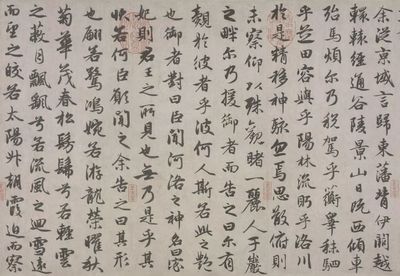 余從京域言歸東藩背伊闕越
轘轅經通谷陵景山日既西傾車
殆馬煩尔乃稅駕乎蘅皋秣駟
乎芝田容與乎陽林流眄乎洛川
於是精移神駭忽焉思散俯則
未察仰以殊觀睹一麗人于巖
之畔尔乃援御者而告之曰尔有
覿於彼者乎彼何人斯若此之艷
也御者對曰臣聞河洛之神名曰宓
妃則君王之所見也無乃是乎其
狀若何臣願聞之余告之曰其形
也翩若驚鴻婉若游龍榮曜秋
菊華茂春松髣髴兮若輕雲
之蔽月飄飄兮若流風之迴雪遠
而望之皎若太陽升朝霞迫而察